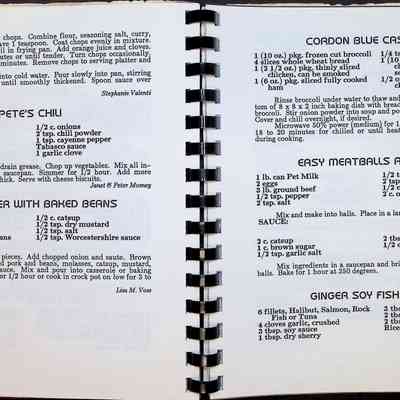 chops. Combine flour, seasoning salt, curry,
ve 1 teaspoon. Coat chops evenly in mixture.
il in frying pan. Add orange juice and cloves.
inutes or until tender, Turn chops occasionally.
minutes. Remove chops to serving platter and
into cold water. Pour slowly into pan, stirring
until smoothly thickened. Spoon sauce over
Stephanie Valenti
PETE'S CHILI
1/2 c. onions
2 tsp. chili powder
1 tsp. cayenne pepper
Tabasco sauce
1 garlic clove
drain grease. Chop up vegetables. Mix all in-
saucepan. Simmer for 1/2 hour. Add more
thick. Serve with cheese biscuits.
Janet & Peter Momey
ER WITH BAKED BEANS
1/2 c. catsup
1/2 tsp. dry mustard
1/2 tsp. salt
1/2 tsp. Worcestershire sauce
pieces. Add chopped onion and saute. Brown
pork and beans, molasses, catsup, mustard,
sauce. Mix and pour into casserole or baking
or 1/2 hour or cook in crock pot on low for 3 to
Lisa M. Voss
CORDON BLUE CAS
1 (10 oz.) pkg. frozen cut broccoli
4 slices whole wheat bread
1 (2 1/2 oz.) pkg. thinly sliced
chicken, can be smoked
1 (6 oz.) pkg. sliced fully cooked
ham
1/4 t
1 (10
c
1/2 c
so
Rinse broccoli under water to thaw and
tom of 8 x 8 x 2 inch baking dish with bread
broccoli. Stir onion powder into soup and po
Cover and chill overnight, if desired.
Microwave 50% power (medium) for 1
18 to 20 minutes for chilled or until heat
during cooking.
EASY MEATBALLS A
1 lb. can Pet Milk
2 eggs
3 lb. ground beef
1/2 tsp. pepper
2 tsp. salt
1/2 t
2 c.
1 c.
2 ts
Mix and make into balls. Place in a lar
SAUCE:
2 c. catsup
1 c. brown sugar
1/2 tsp. garlic salt
2 tbs
1/2 c
Mix ingredients in a saucepan and bri
balls. Bake for 1 hour at 350 degrees.
GINGER SOY FISH
6 fillets, Halibut, Salmon, Rock
Fish or Tuna
4 cloves garlic, crushed
3 tbsp. soy sauce
1 tbsp. dry sherry
2 tb
3 tb
2 tb
Rice